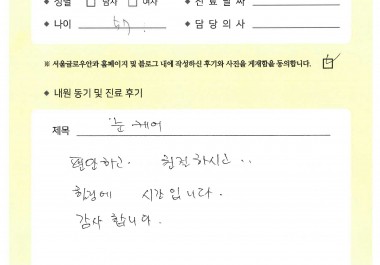 ◆ 성별 □ 남자 □ 여자 ◆ 진료날짜
◆ 나이 ◆ 담당의사
※ 서울글로우안과 홈페이지 및 블로그 내에 작성하신 후기와 사진을 게재함을 동의합니다. ☑
◆ 내원 동기 및 진료 후기
제목 눈 케어
편안하고. 친절하시고..
힐링에 시간 입니다.
감사 합니다.